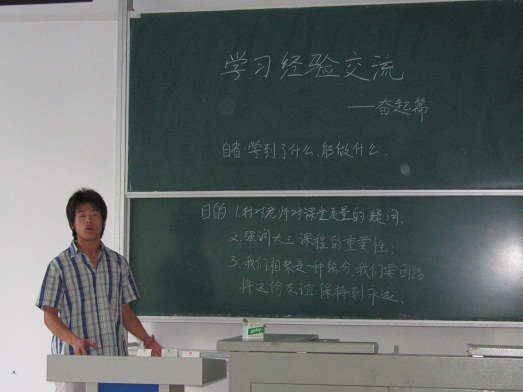 学习经验交流
——奋起篇
自省:学到了什么,能做什么.
目的 1.针对老师对课堂质量的疑问.
2.强调大三课程的重要性.
3.我们相聚是一种缘分,我们要团结
将这份友谊保持到永远.